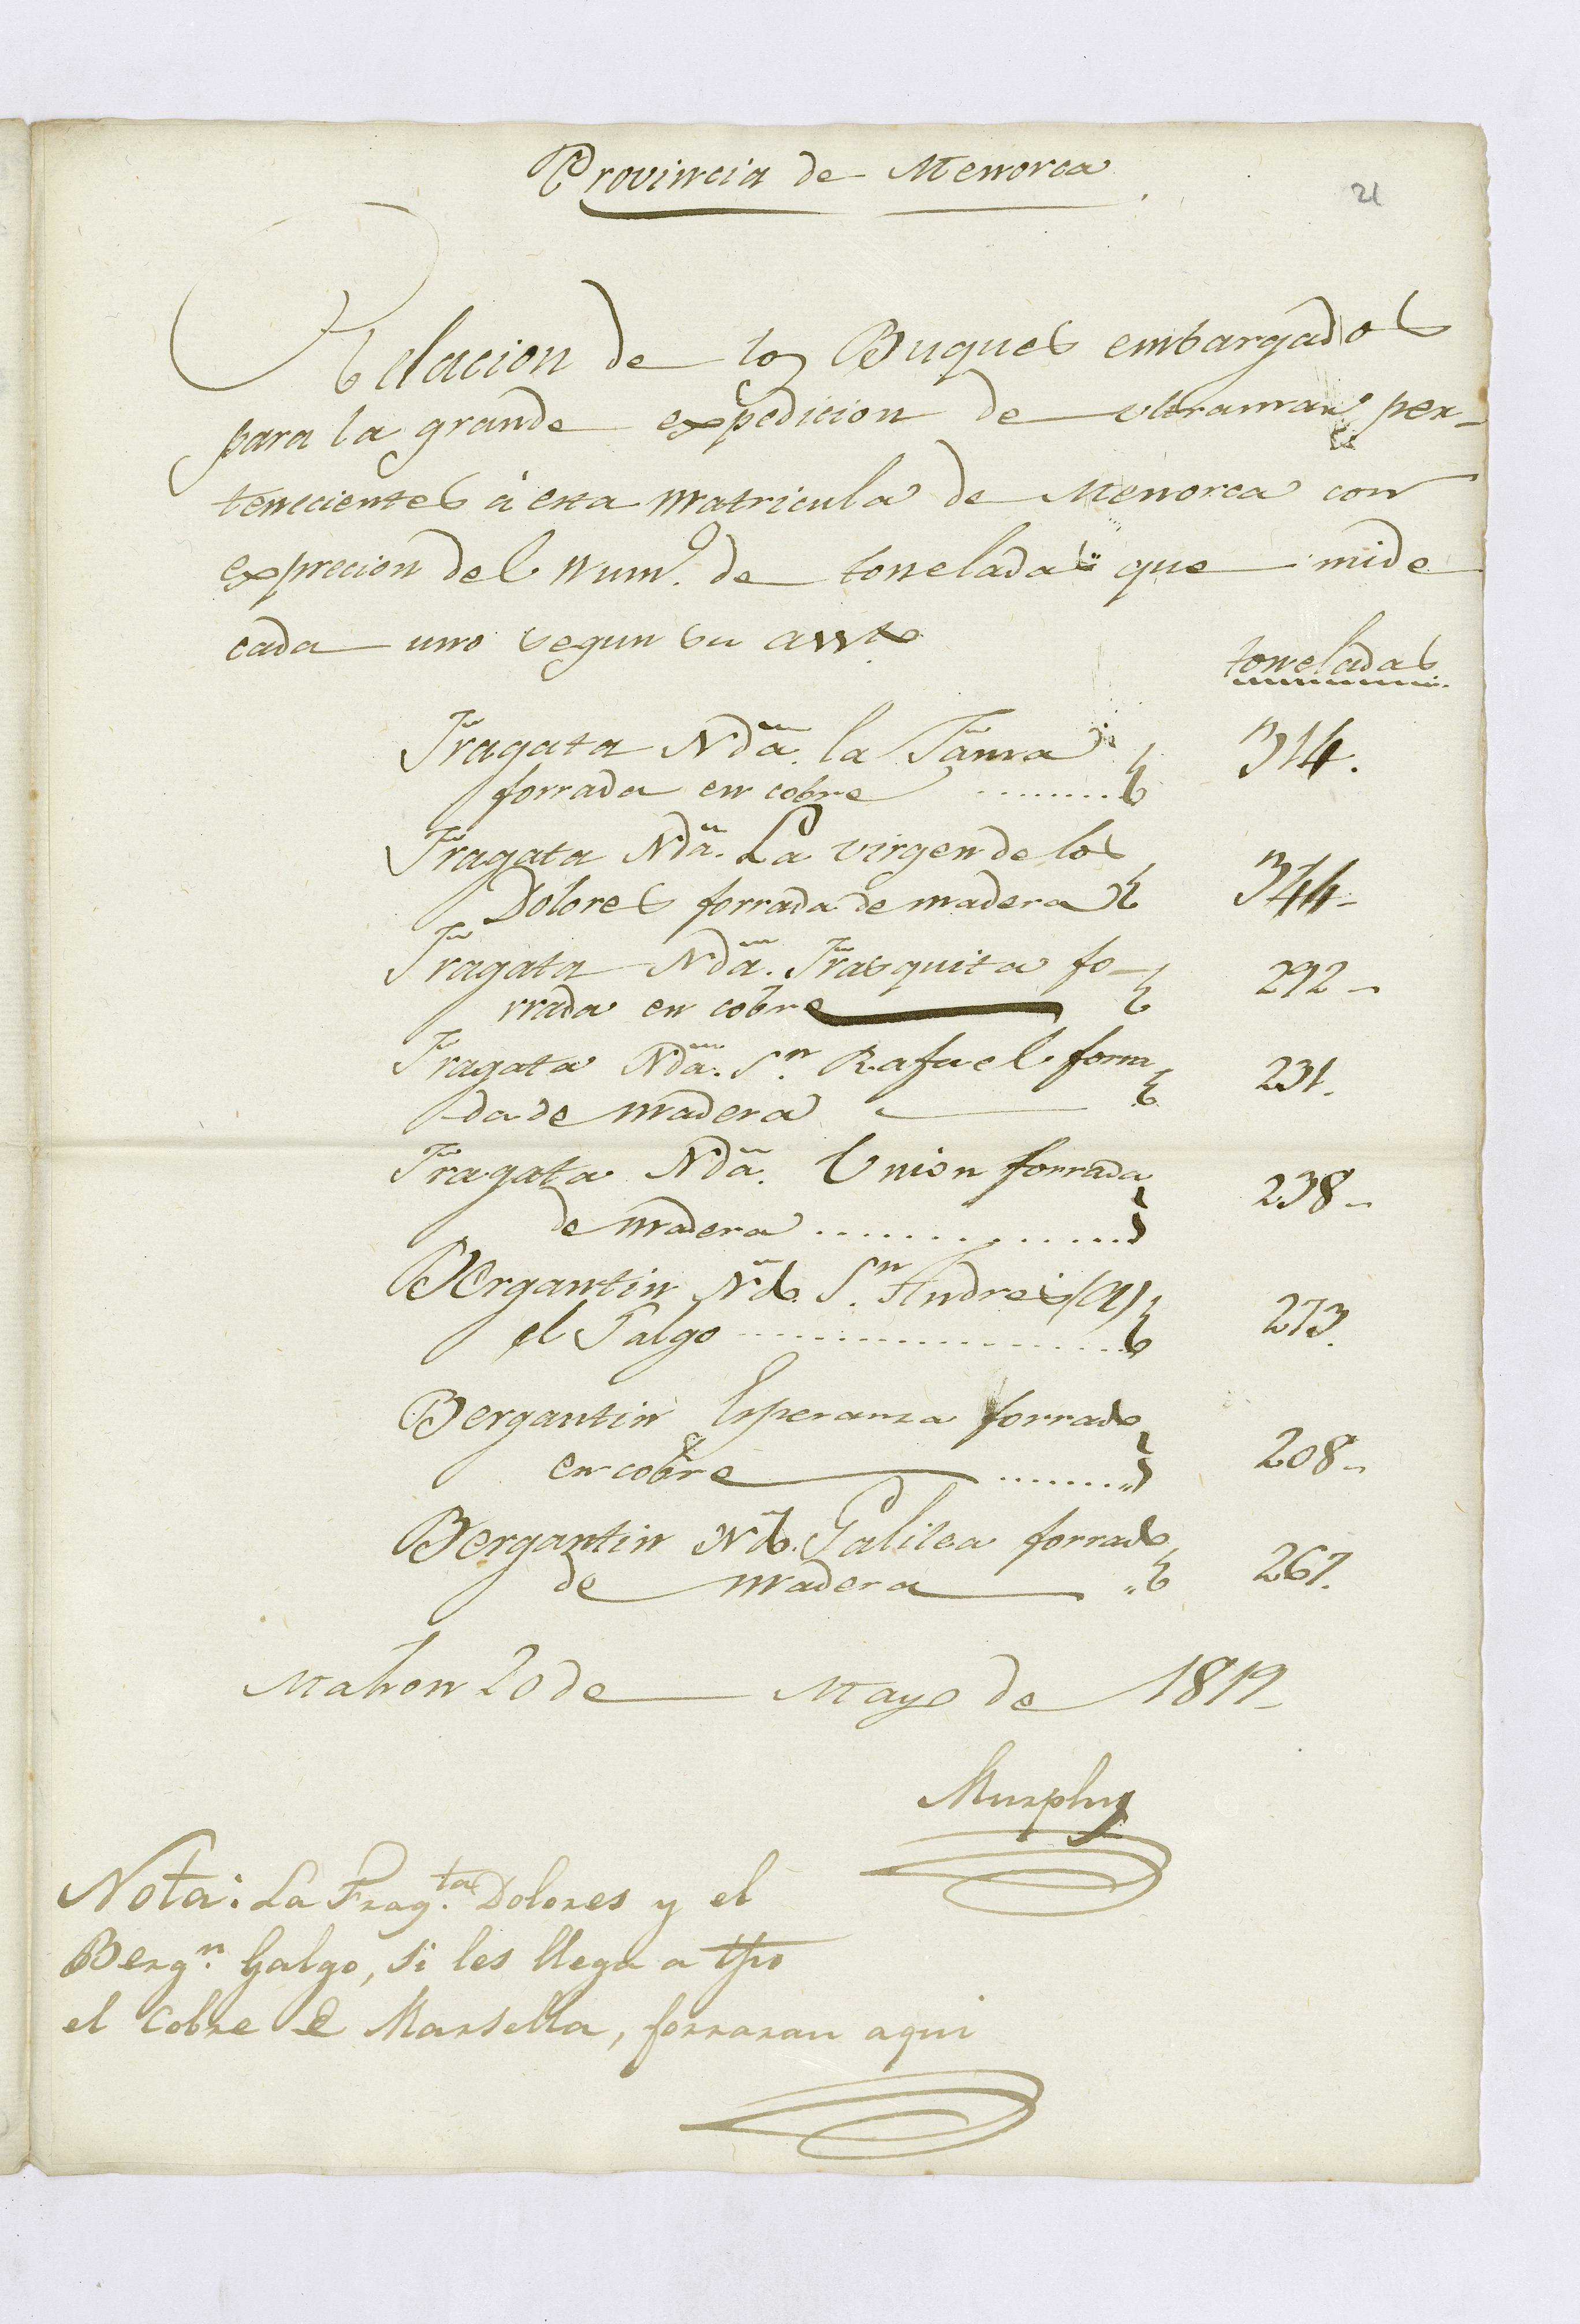 Provincia de Menorca
21
Relacion de los Buques embargados
para la grande expedicion de ultramar per-
tenecientes à esta matricula de Menorca con
exprecion del Num.º de toneladas que mide
cada uno segun su
toneladas
Fragata Nda. la Fama
forrada en cobre ......... 314.
Fragata Nda. La virgen de los
Dolores forrada de madera 344-
Fragata Nda. Frasquita fo-
rrada en cobre 292-
Fragata Nda. Sn. Rafael forra
da de madera 231.
Fragata Nda. Union forrada
de madera .............. 238-
Bergantin Ndo. Sn. Andres (A)
el Galgo .............. 273.
Bergantin Esperanza forrado
en cobre ........ 208-
Bergantin Ndo. Galilea forrado
de madera 267.
Mahon 20 de Mayo de 1819-
Murphy
Nota: La Frag.ta Dolores y el
Berg.n Galgo, si les llega a tpo
el cobre de Marsella, forraran aqui